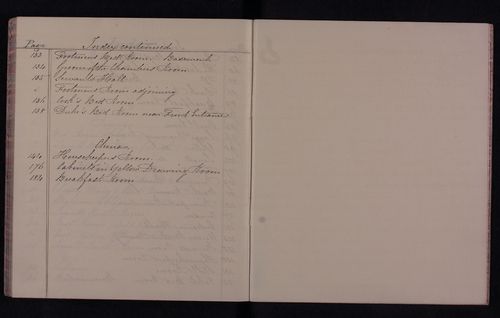 Page Index continued
133 Footmens Bed Room. Basement
134 Groom of the Chambers Room
135 Servants Hall
" Footmens Room adjoining
136 Cook's Bed Room
138 Duke's Bed Room near Front Entrance
China
Housekeepers Room
176 Cabinets in Yellow Drawing Room
184 Breakfast Room